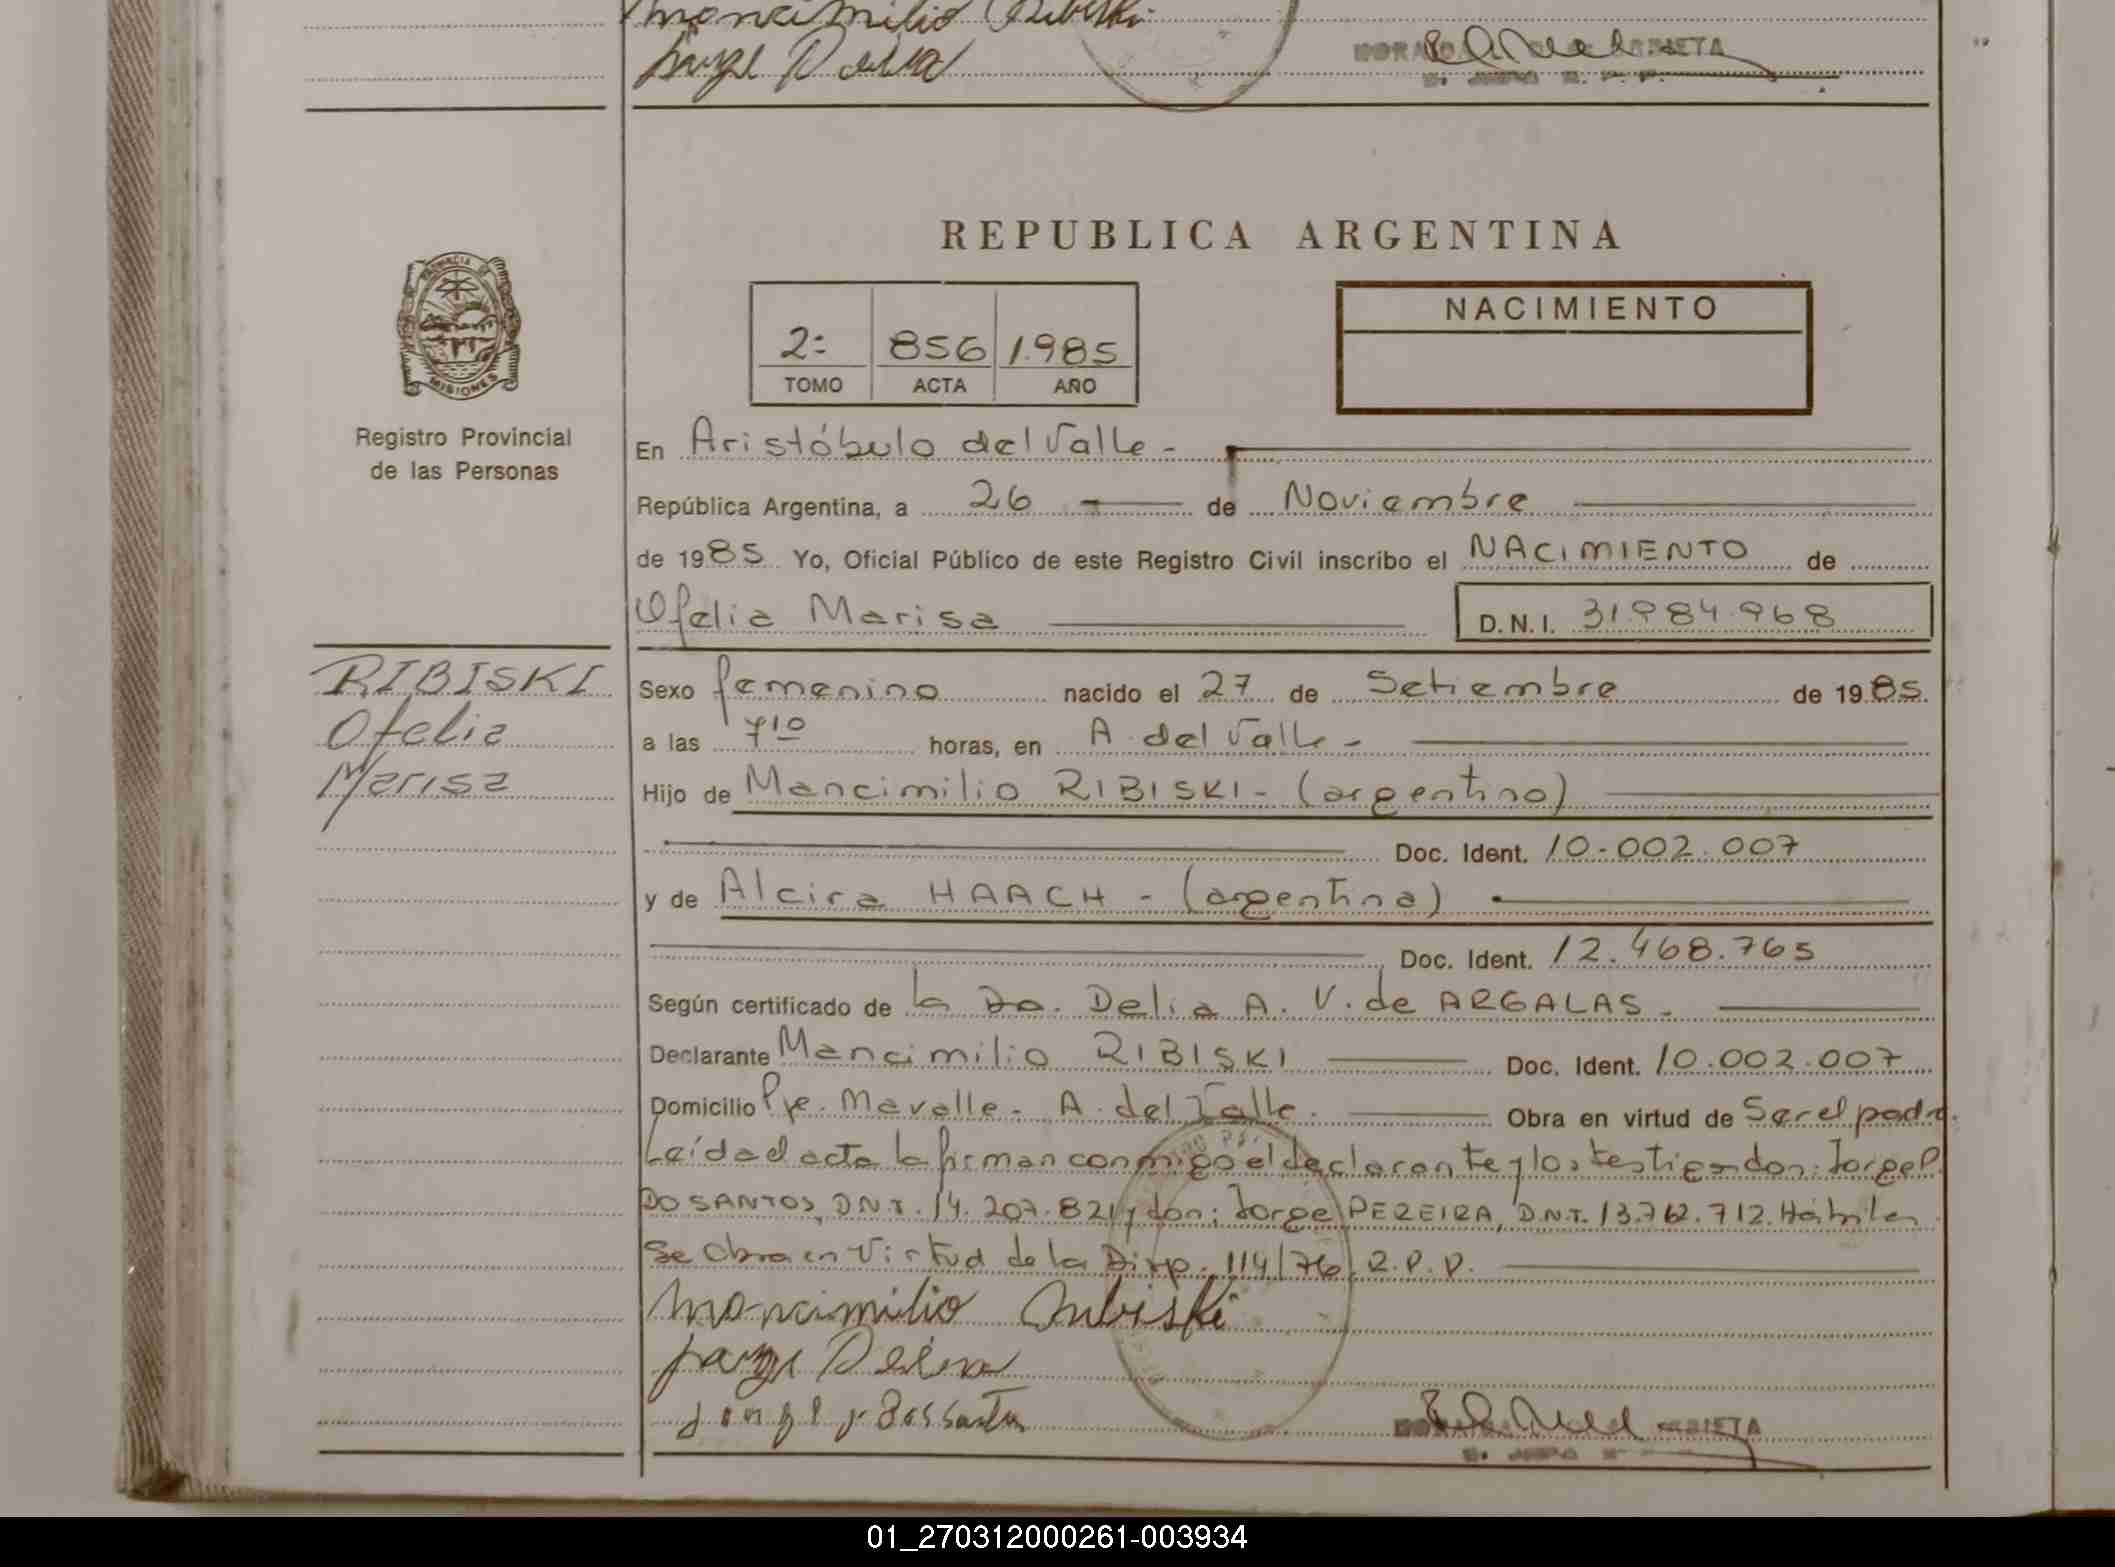 Mancimilio Ribiski
Jorge
REPUBLICA ARGENTINA
PROVINCIA DE
MISIONES
Registro Provincial
de las Personas
2= 856 1.985
TOMO ACTA AÑO
NACIMIENTO
En Aristóbulo del Valle -
República Argentina, a 26 de Noviembre
de 1985 Yo, Oficial Público de este Registro Civil inscribo el NACIMIENTO de
Ofelia Marisa D.N.I. 31.984.968
RIBISKI
Ofelia
Marisa
Sexo femenino nacido el 27 de Setiembre de 1985.
a las 7 10 horas, en A. del Valle -
Hijo de Mancimilio RIBISKI - (argentino)
Doc. Ident. 10.002.007
y de Alcira HAACH - (argentina)
Doc. Ident. 12.468.765
Según certificado de la Da. Delia A. V. de ARGALAS.
Declarante Mancimilio RIBISKI Doc. Ident. 10.002.007
Domicilio Pje. Mavalle - A. del Valle. Obra en virtud de Ser el padre.
Leída el acta la firman conmigo el declarante y los testigos don: Jorge P.
DO SANTOS, D.N.I. 14.207.821 y don: Jorge PEREIRA, D.N.I. 13.762.712. Hábiles
Se obra en virtud de la Disp. 114/76 R.P.P.
Mancimilio Ribiski
Jorge
Jorge p Dos Santos
01_270312000261-003934